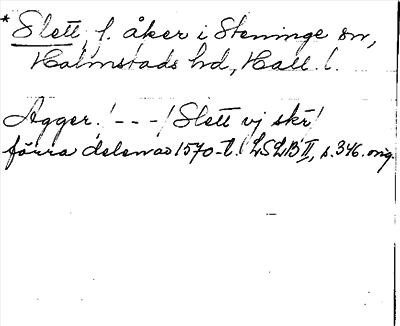 * Slett, f. åker i Steninge sn,
Halmstads hd, Hall. l.
Agger. /- - -/ Slett vj skr/
förra delen av 1570-t. (LSLB II, s. 346. orig.